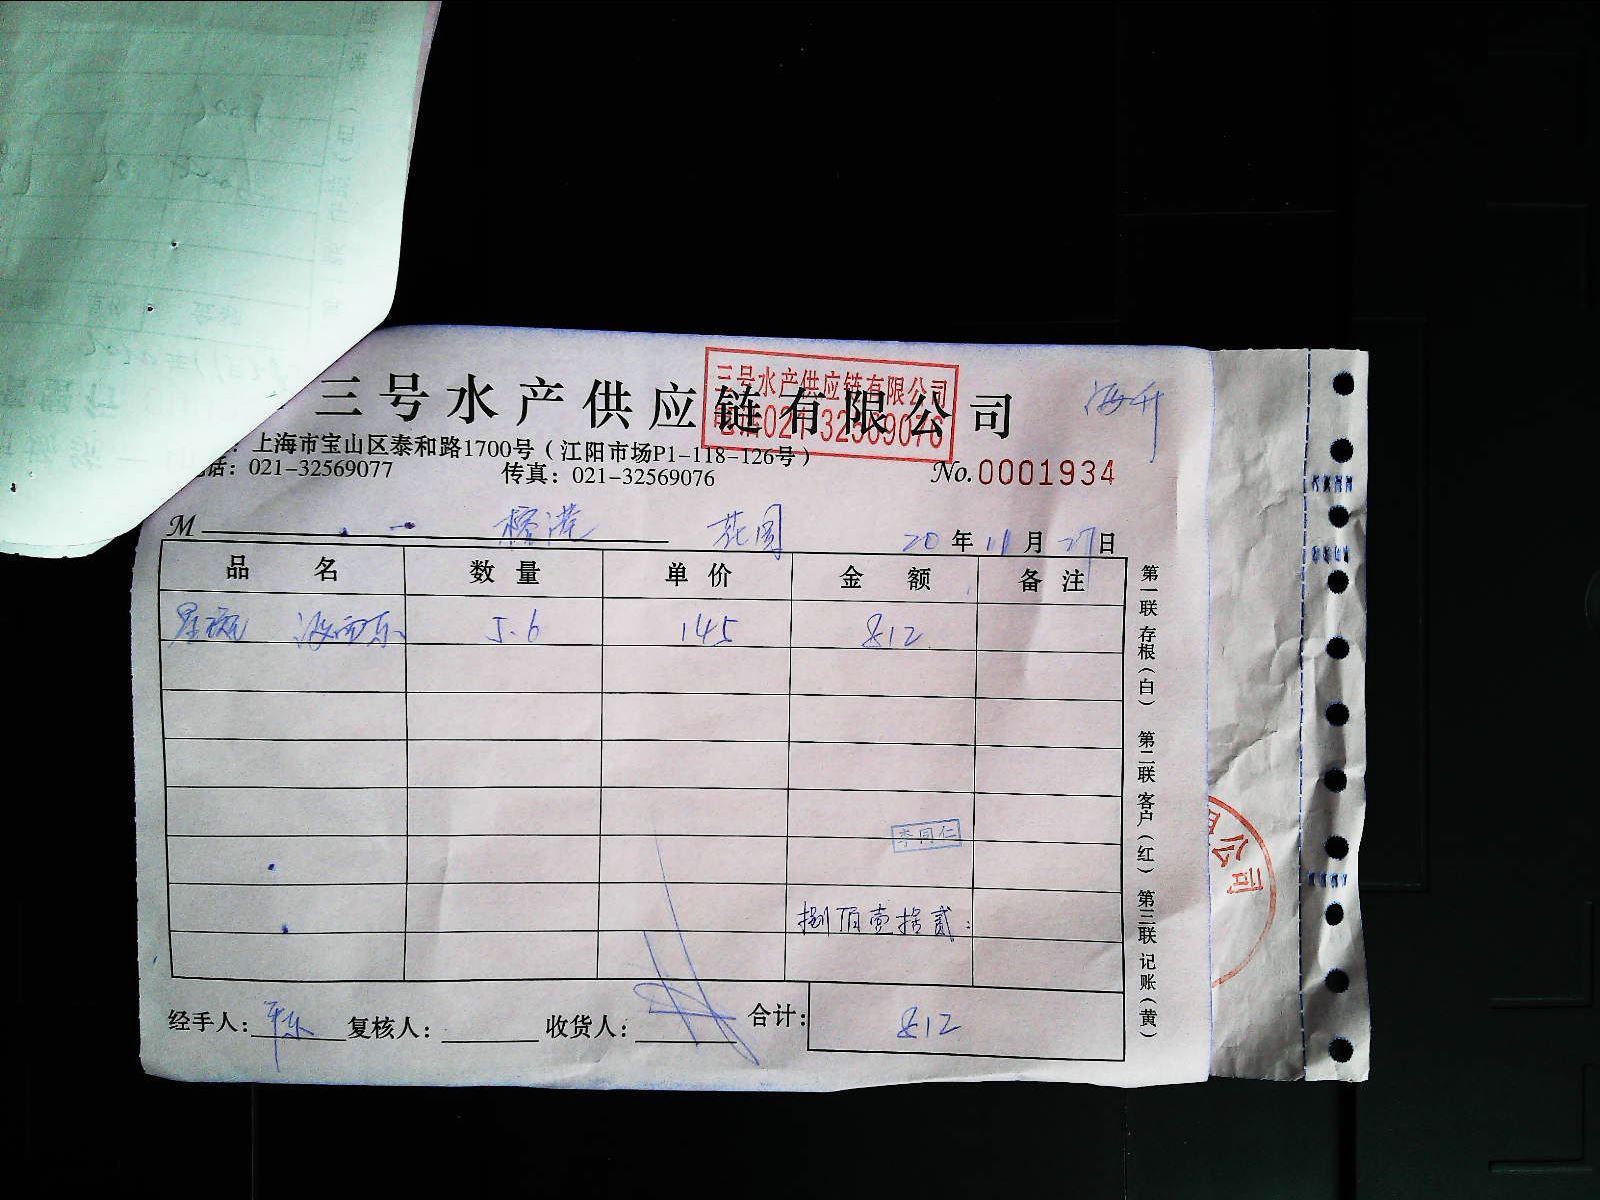 三号水产供应链有限公司
三号水产供应链有限公司
电话021-32569076
海升
上海市宝山区泰和路1700号（江阳市场P1-118-126号）
话：021-32569077 传真：021-32569076
No.0001934
M 花园 20年11月27日
品名 数量 单价 金额 备注
5.6 145 812
李同仁
捌佰壹拾贰:
经手人： 复核人： 收货人： 合计： 812
第一联 存根（白） 第二联 客户（红） 第三联 记账（黄）
公司